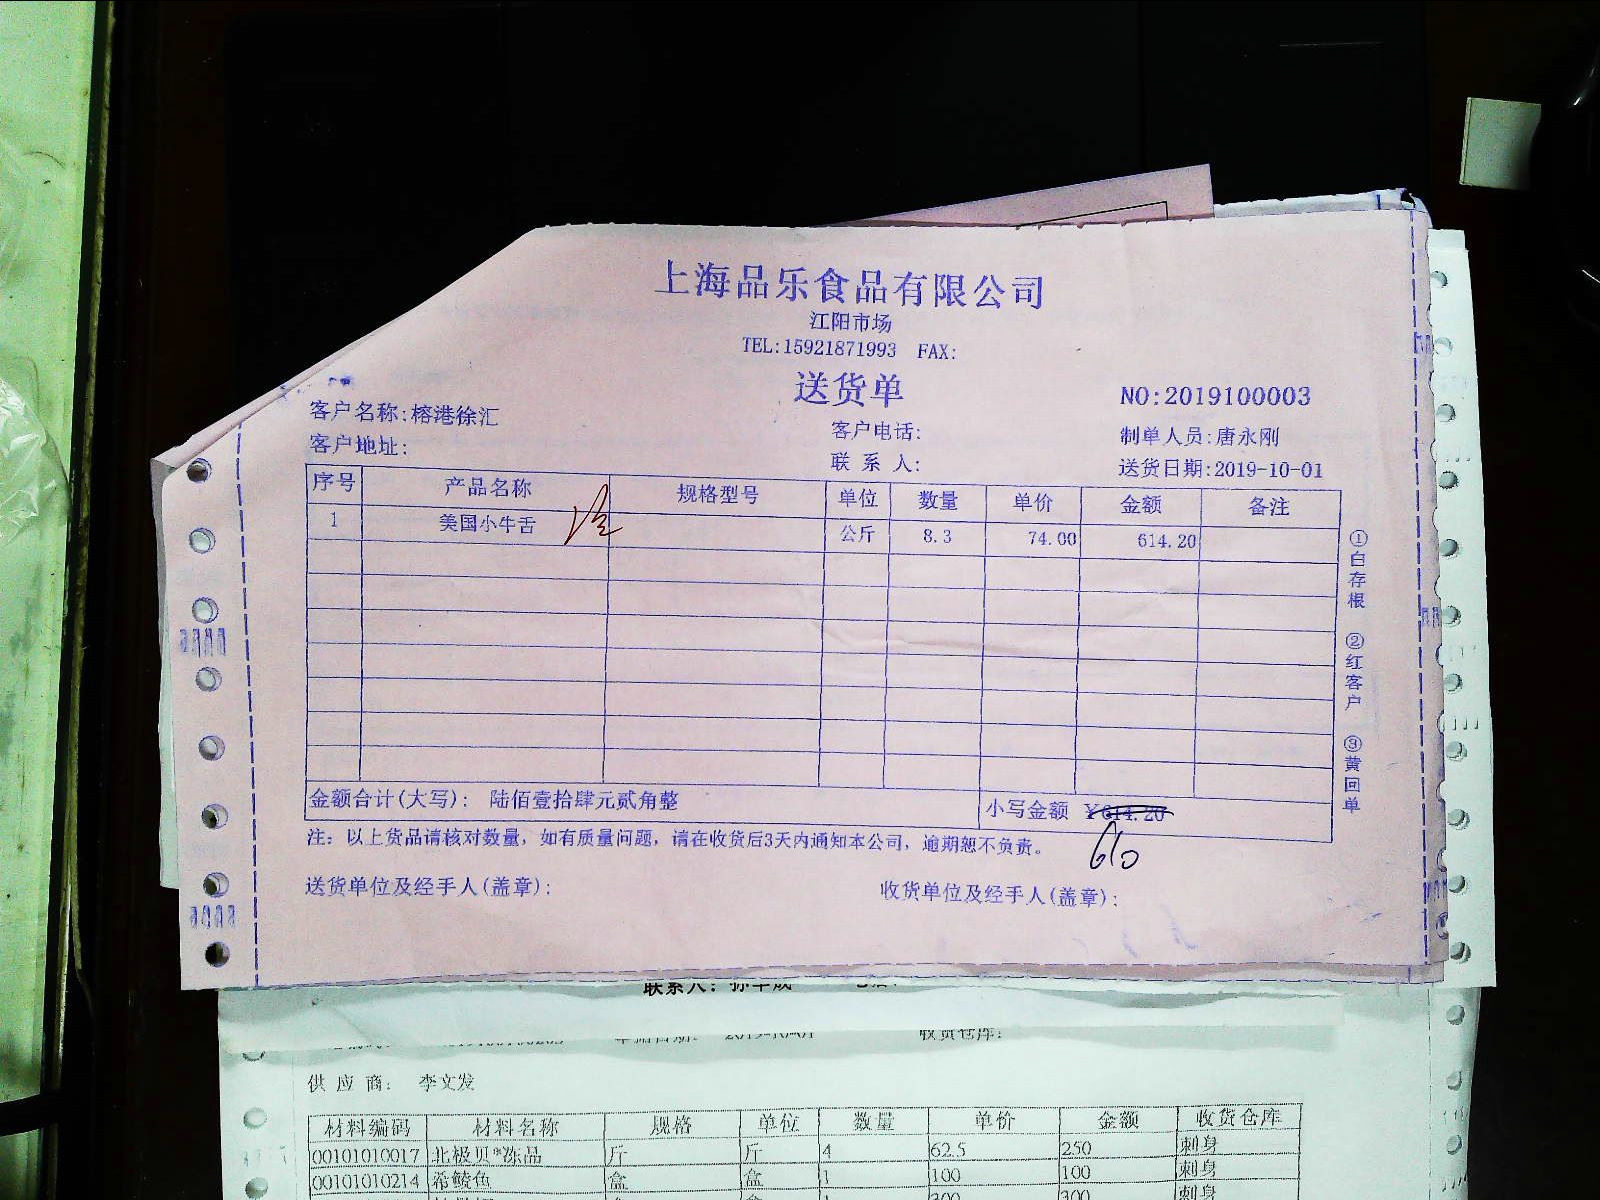 上海品乐食品有限公司
江阳市场
TEL:15921871993 FAX:
送货单
NO:2019100003
客户名称:榕港徐汇
客户电话:
制单人员:唐永刚
客户地址:
联 系 人:
送货日期:2019-10-01
序号 产品名称 规格型号 单位 数量 单价 金额 备注
1 美国小牛舌 公斤 8.3 74.00 614.20
①白存根 ②红客户 ③黄回单
金额合计(大写): 陆佰壹拾肆元贰角整 小写金额 ¥614.20
610
注: 以上货品请核对数量, 如有质量问题, 请在收货后3天内通知本公司, 逾期恕不负责。
送货单位及经手人(盖章): 收货单位及经手人(盖章):
联系人:
收货仓库:
供 应 商: 李文发
材料编码 材料名称 规格 单位 数量 单价 金额 收货仓库
00101010017 北极贝*冻品 斤 斤 4 62.5 250 刺身
00101010214 希鲮鱼 盒 盒 1 100 100 刺身
300 300 刺身